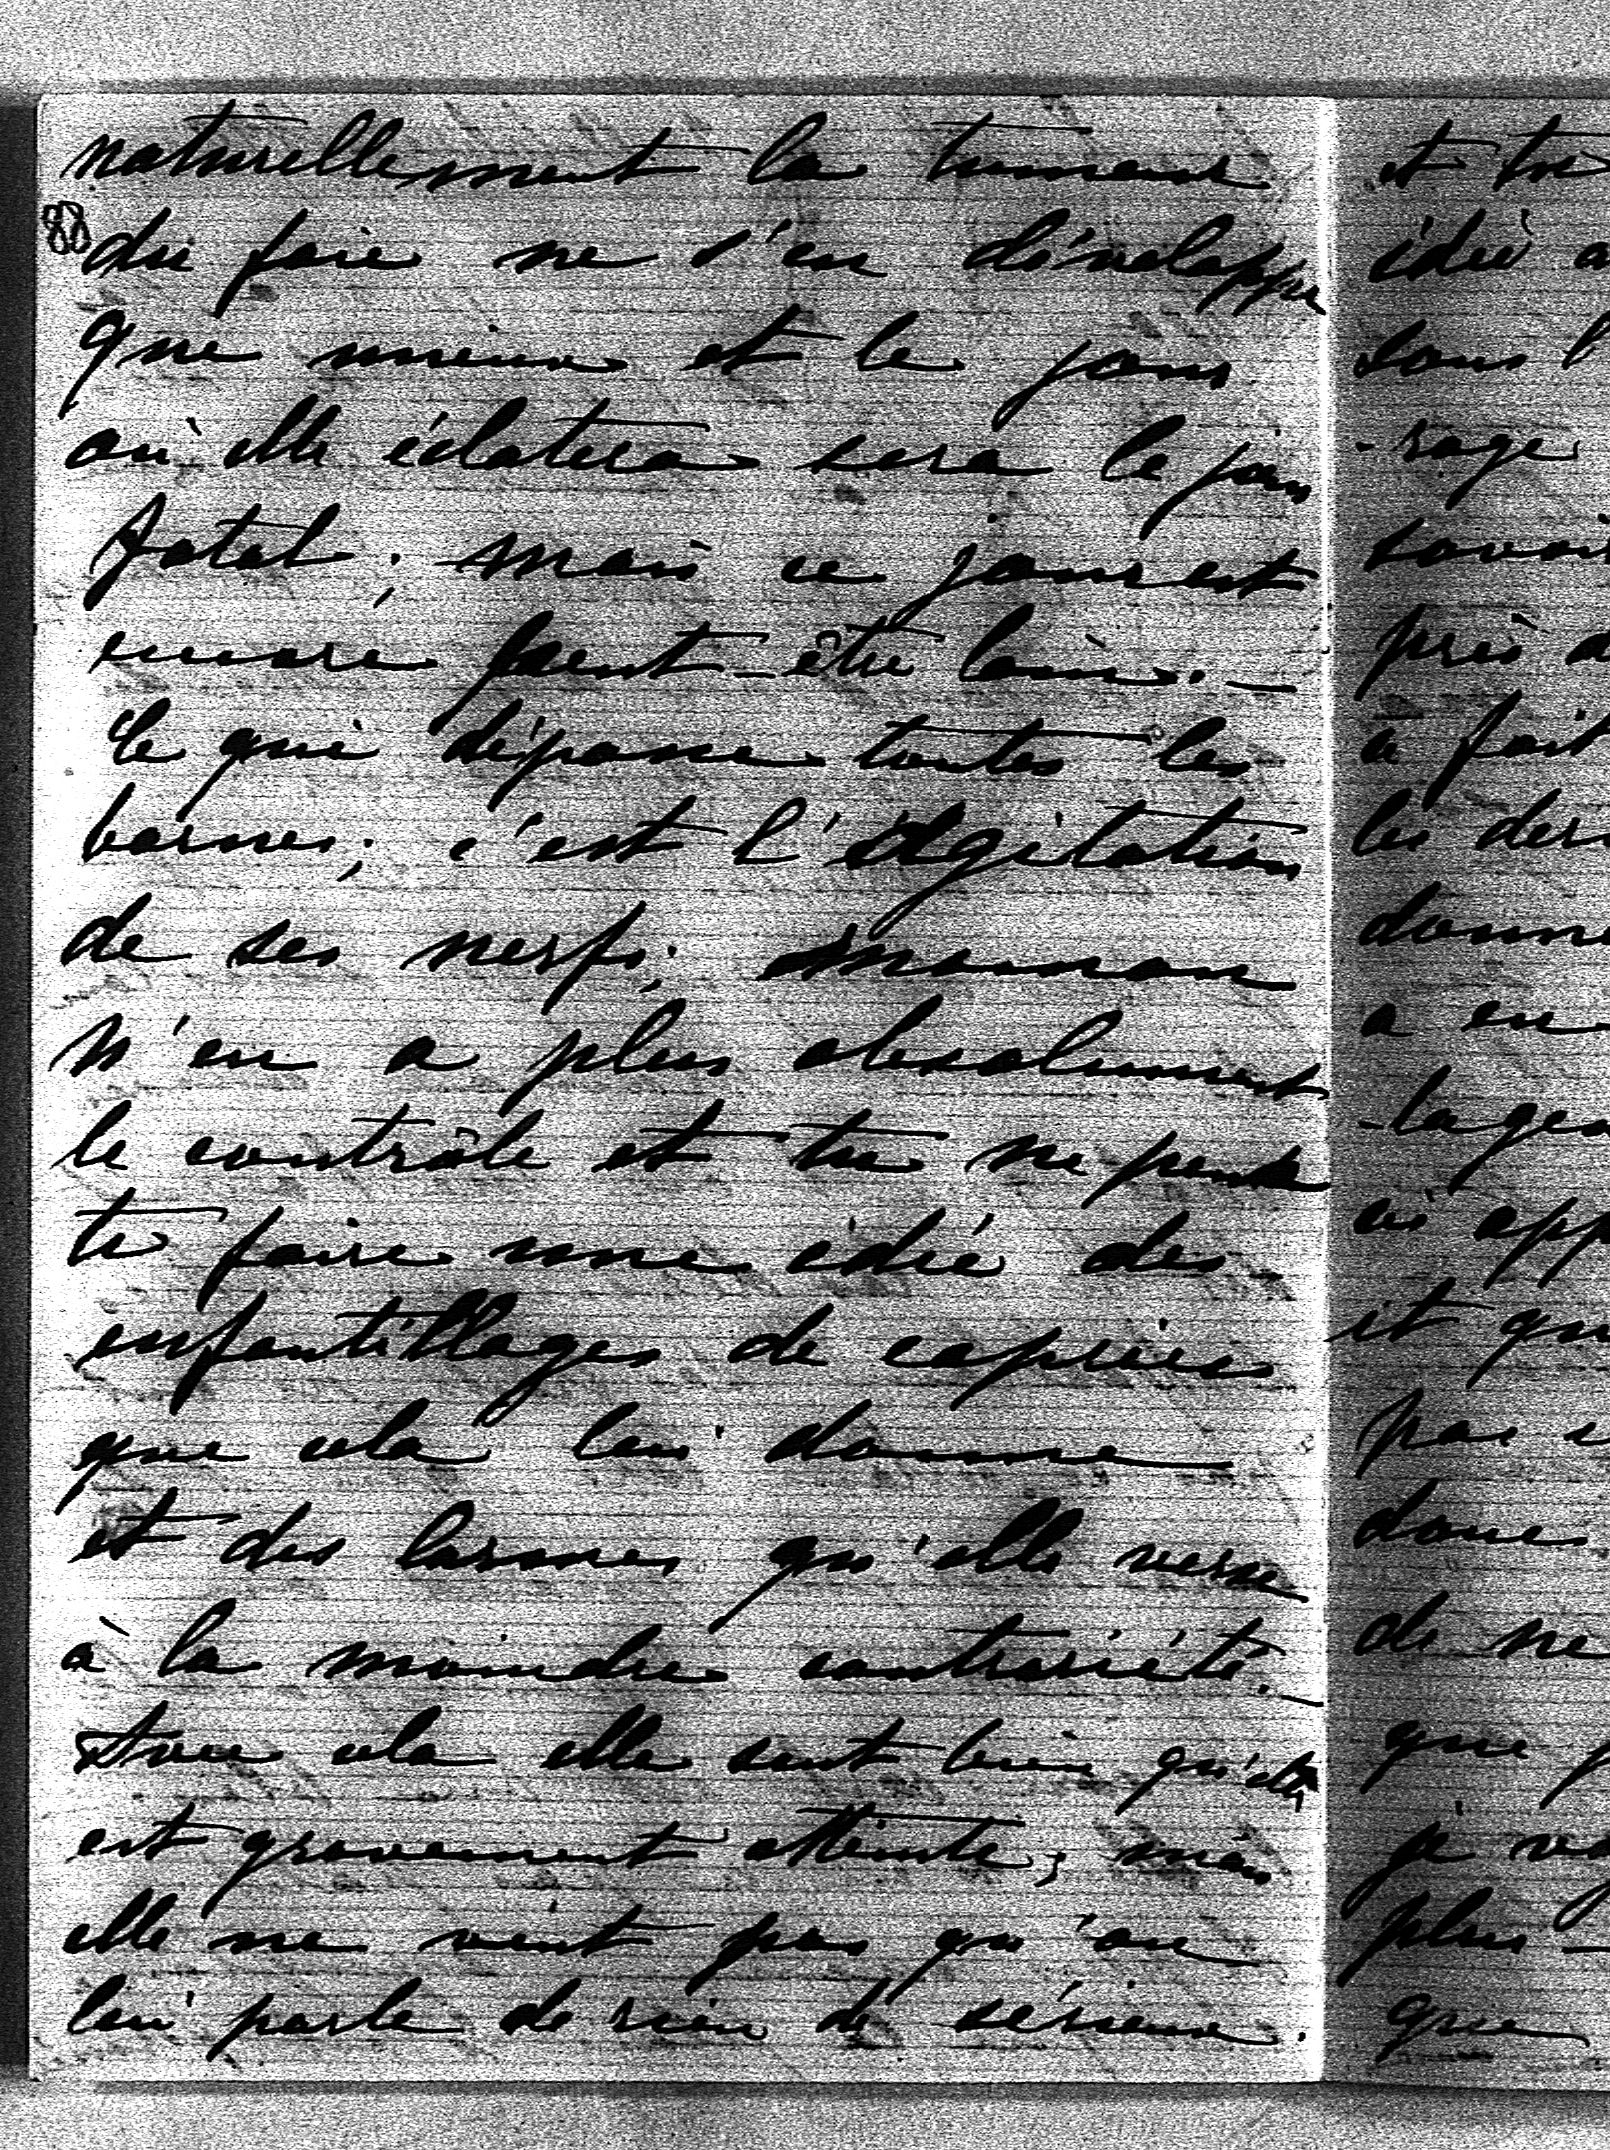 naturellement la tumeur
88
du foie ne s'en développe
que mieux et le jour
où elle éclatera sera le jour
fatal; mais ce jour est
encore peut-être loin. —
Ce qui dépasse toutes les
bornes; c'est l'agitation
de ses nerfs; maman
n'en a plus absolument
le contrôle et tu ne peux
te faire une idée des
enfantillages de caprices
que cela lui donne
et des larmes qu'elle verse
à la moindre contrariété. —
Avec cela elle sent bien qu'elle
est gravement atteinte; mais
elle ne veut pas qu'on
lui parle de rien de sérieux.
et tu
idée a
sous l
-rage
savoir
près a
a fait
les der
donne
a en
-lagea
ai app
it qu
pas
donc
de ne
que
je vo
plus —
que